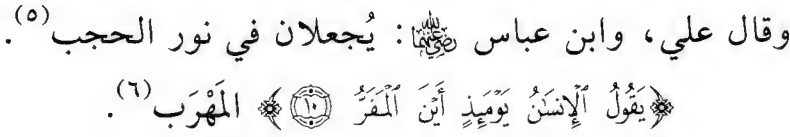 وقال علي، وابن عباس رضي الله عنهما: يُجعلان في نور الحجب(٥).
﴿يَقُولُ ٱلْإِنسَٰنُ يَوْمَئِذٍ أَيْنَ ٱلْمَفَرُّ ١٠﴾ المَهْرَب(٦).